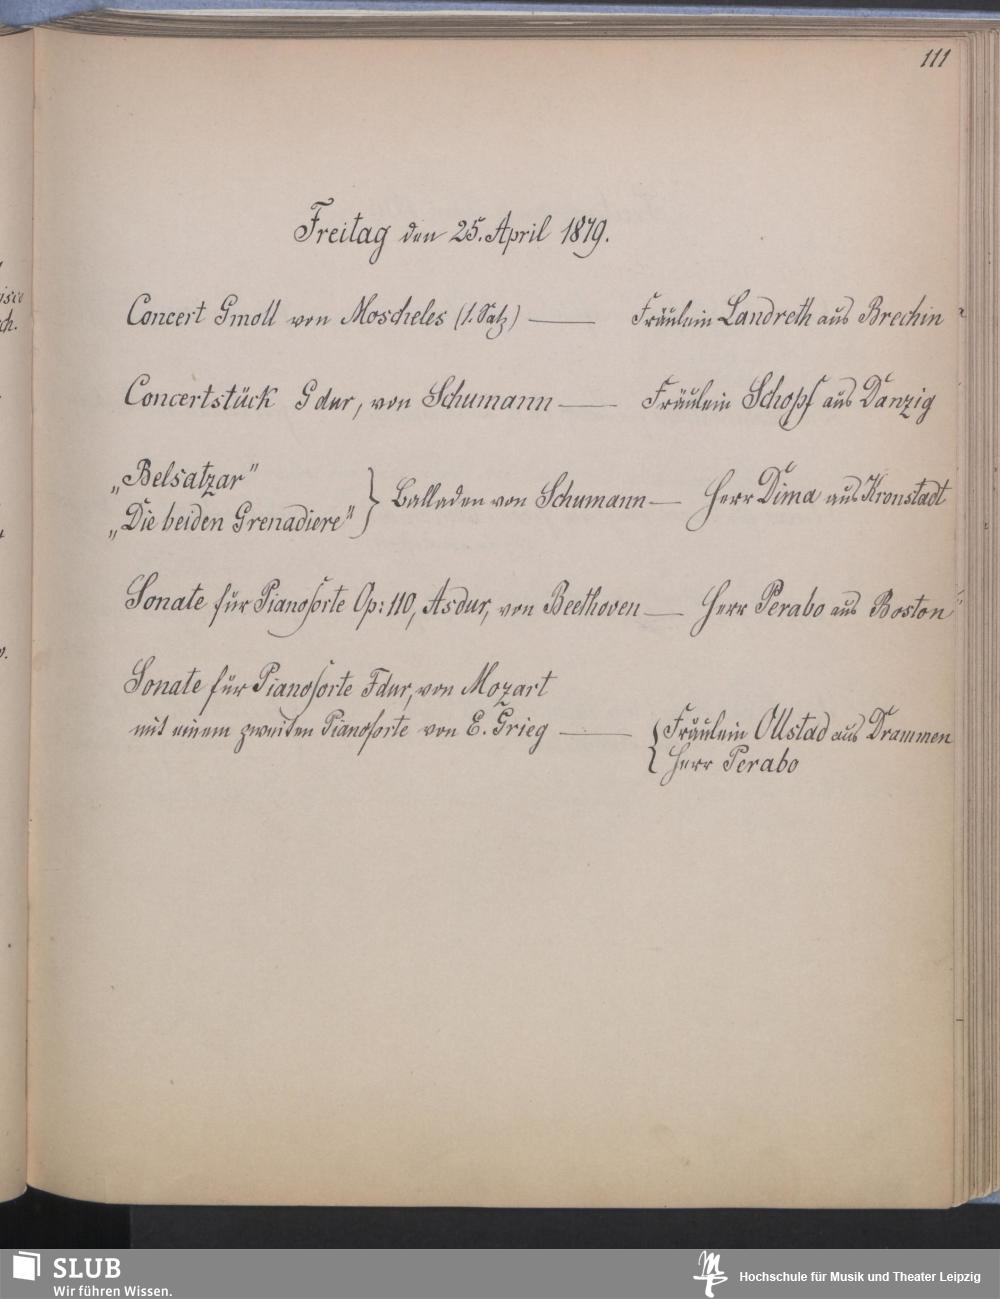 111
Freitag den 25. April 1879.
Concert Gmoll von Moscheles (1. Satz) — Fräulein Landreth aus Brechin
Concertstück Gdur, von Schumann — Fräulein Schopf aus Danzig
„Belsatzar"
„Die beiden Grenadiere" } Balladen von Schumann — Herr Dima aus Kronstadt
Sonate für Pianoforte Op: 110, Asdur, von Beethoven — Herr Perabo aus Boston
Sonate für Pianoforte Fdur, von Mozart
mit einem zweiten Pianoforte von E. Grieg — { Fräulein Ollstad aus Drammen
Herr Perabo
SLUB
Wir führen Wissen.
Hochschule für Musik und Theater Leipzig